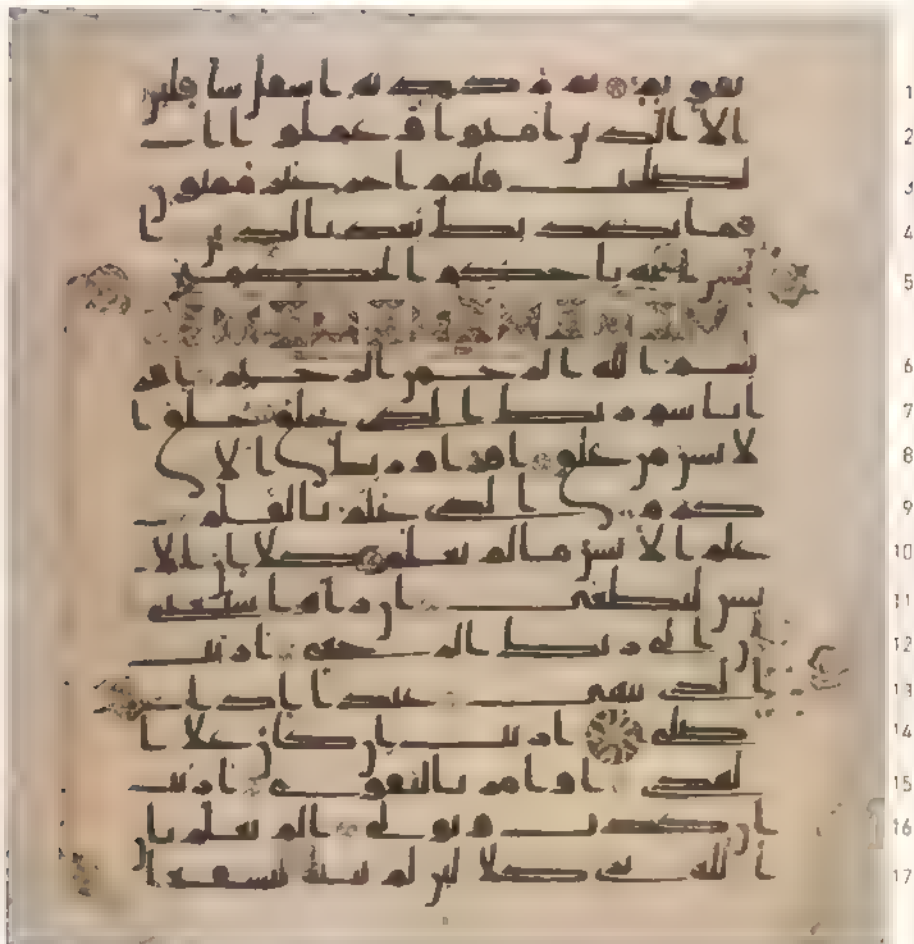 1 تقويم ثم رددنه اسفل سافلين
2 الا الذين امنوا وعملوا ا
3 لصلحت فلهم اجر غير ممنون
4 فما يكذبك بعد بالدين ا
5 ليس الله باحكم الحكمين
6 بسم الله الرحمن الرحيم اقر
7 ا باسم ربك الذى خلق خلق ا
8 لانسن من علق اقرا وربك الا
9 كرم الذى علم بالقلم
10 علم الانسن ما لم يعلم كلا ان الا
11 نسن ليطغى ان راه استغنى
12 ان الى ربك الرجعى اريت
13 الذى ينهى عبدا اذا
14 صلى اريت ان كان على ا
15 لهدى او امر بالتقوى اريت
16 ان كذب وتولى الم يعلم با
17 ن الله يرى كلا لئن لم ينته لنسفعا